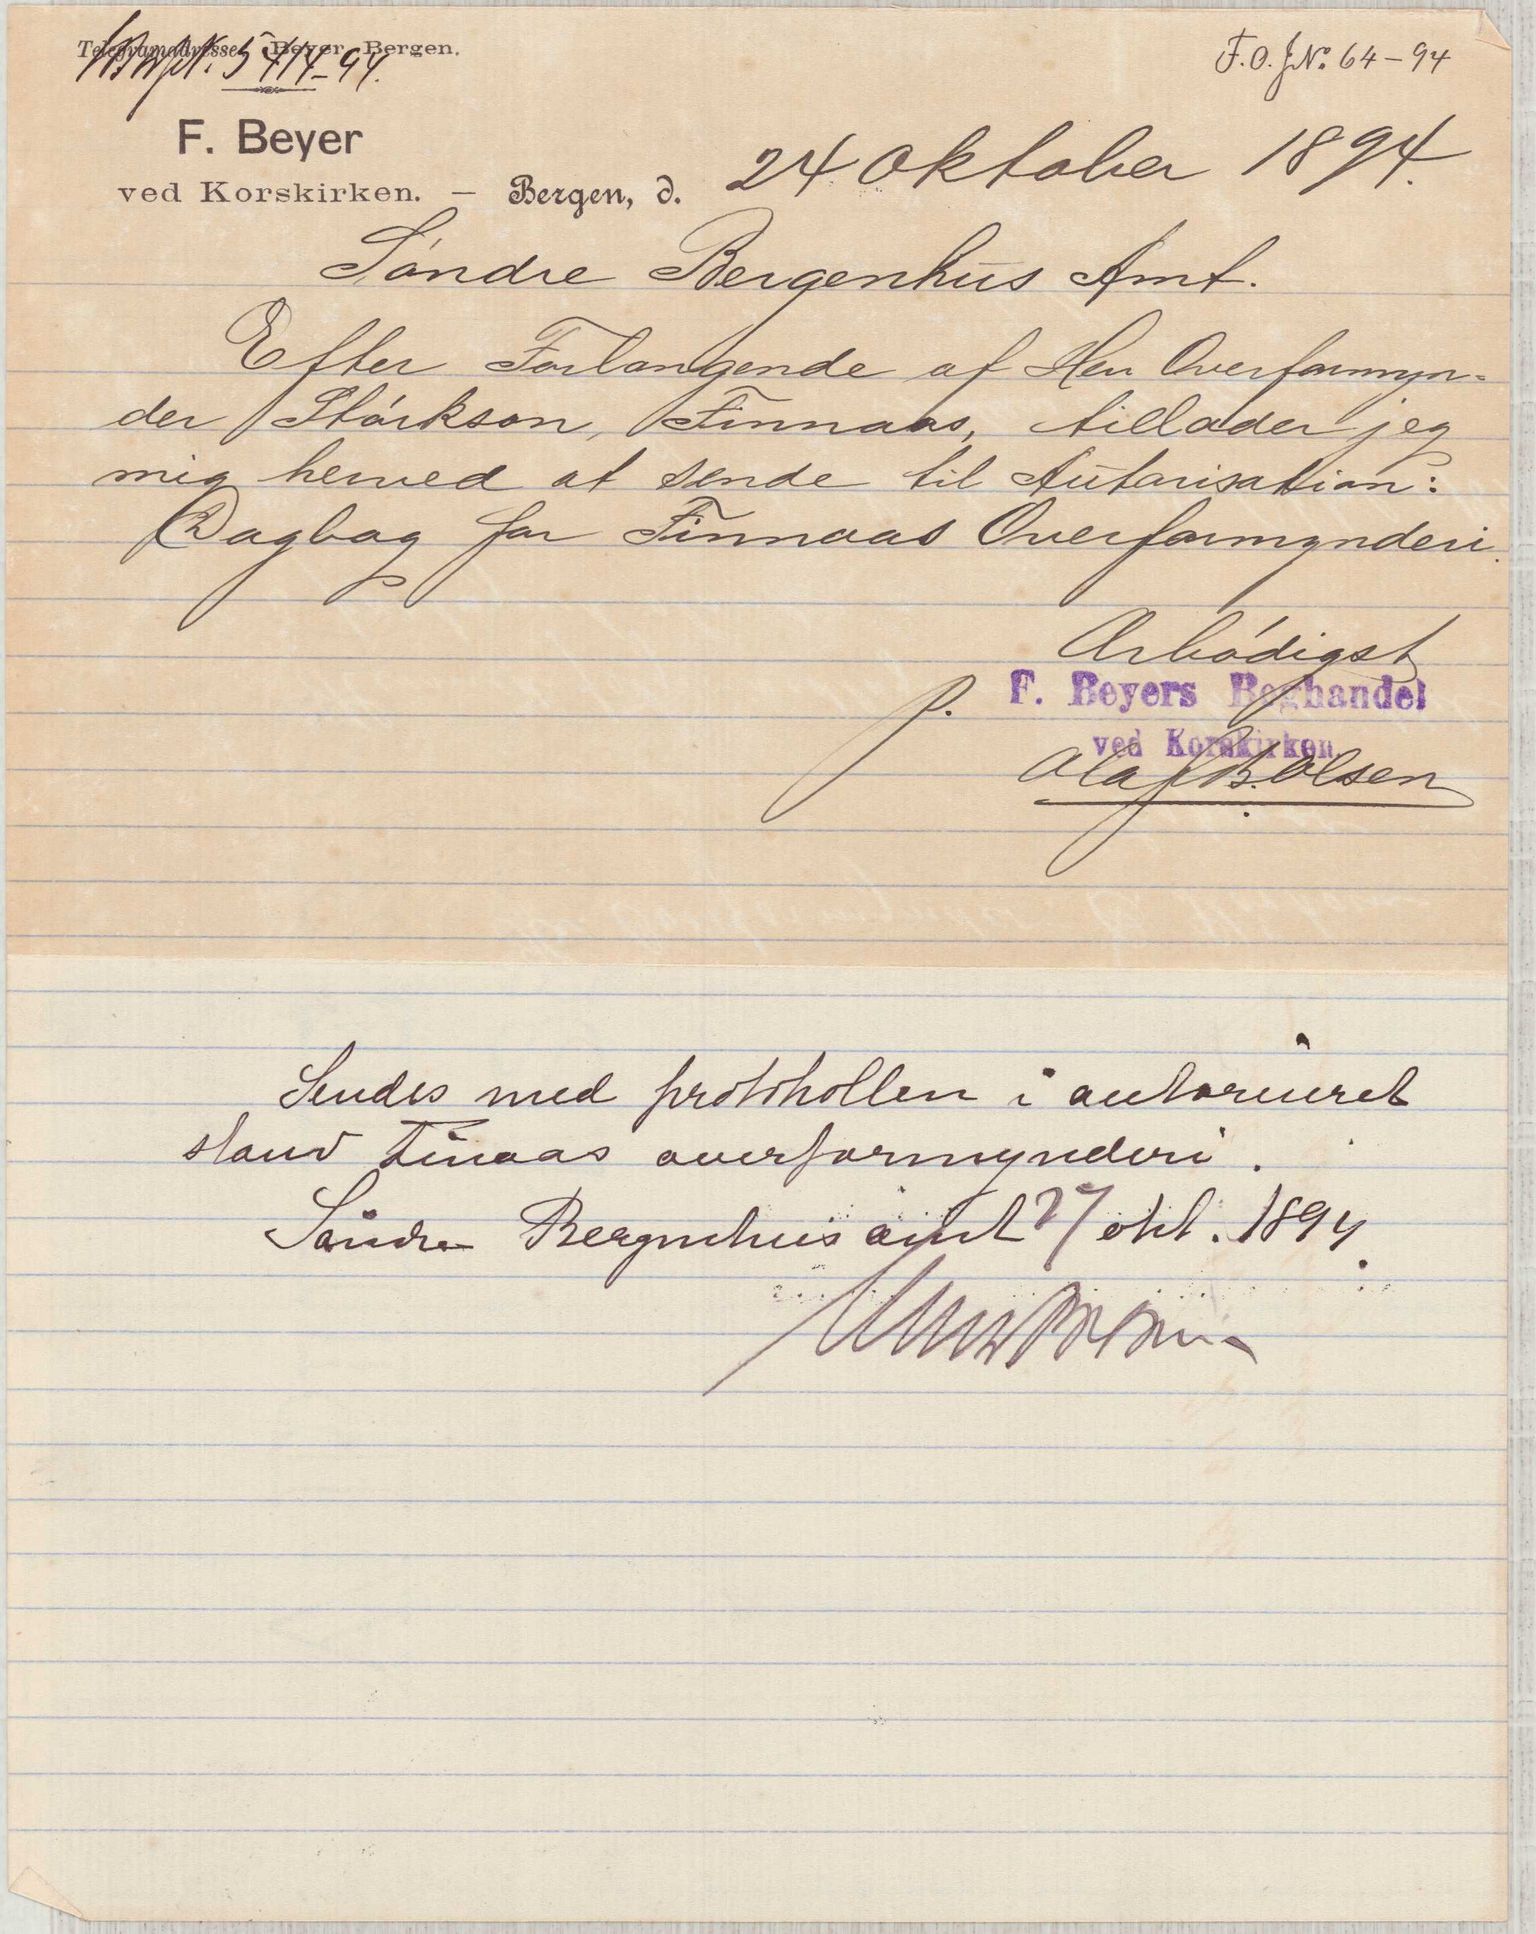 Telegramadresse: Beyer, Bergen.
5414-94.
F. O. J. No. 64-94
F. Beyer
ved Korskirken. — Bergen, d. 24 Oktober 1894.
Söndre Bergenhus Amt.
Efter Forlangende af Herr Overformyn-
der Störkson, Finnaas, tillader jeg
mig herved at sende til Autorisation:
Dagbog for Finnaas Overformynderi.
Arbödigst
p. F. Beyers Boghandel
ved Korskirken.
Olaf B. Olsen
Sendes med protokollen i autoriseret
stand Finaas overformynderi.
Söndre Bergenhus amt 27 okt. 1894